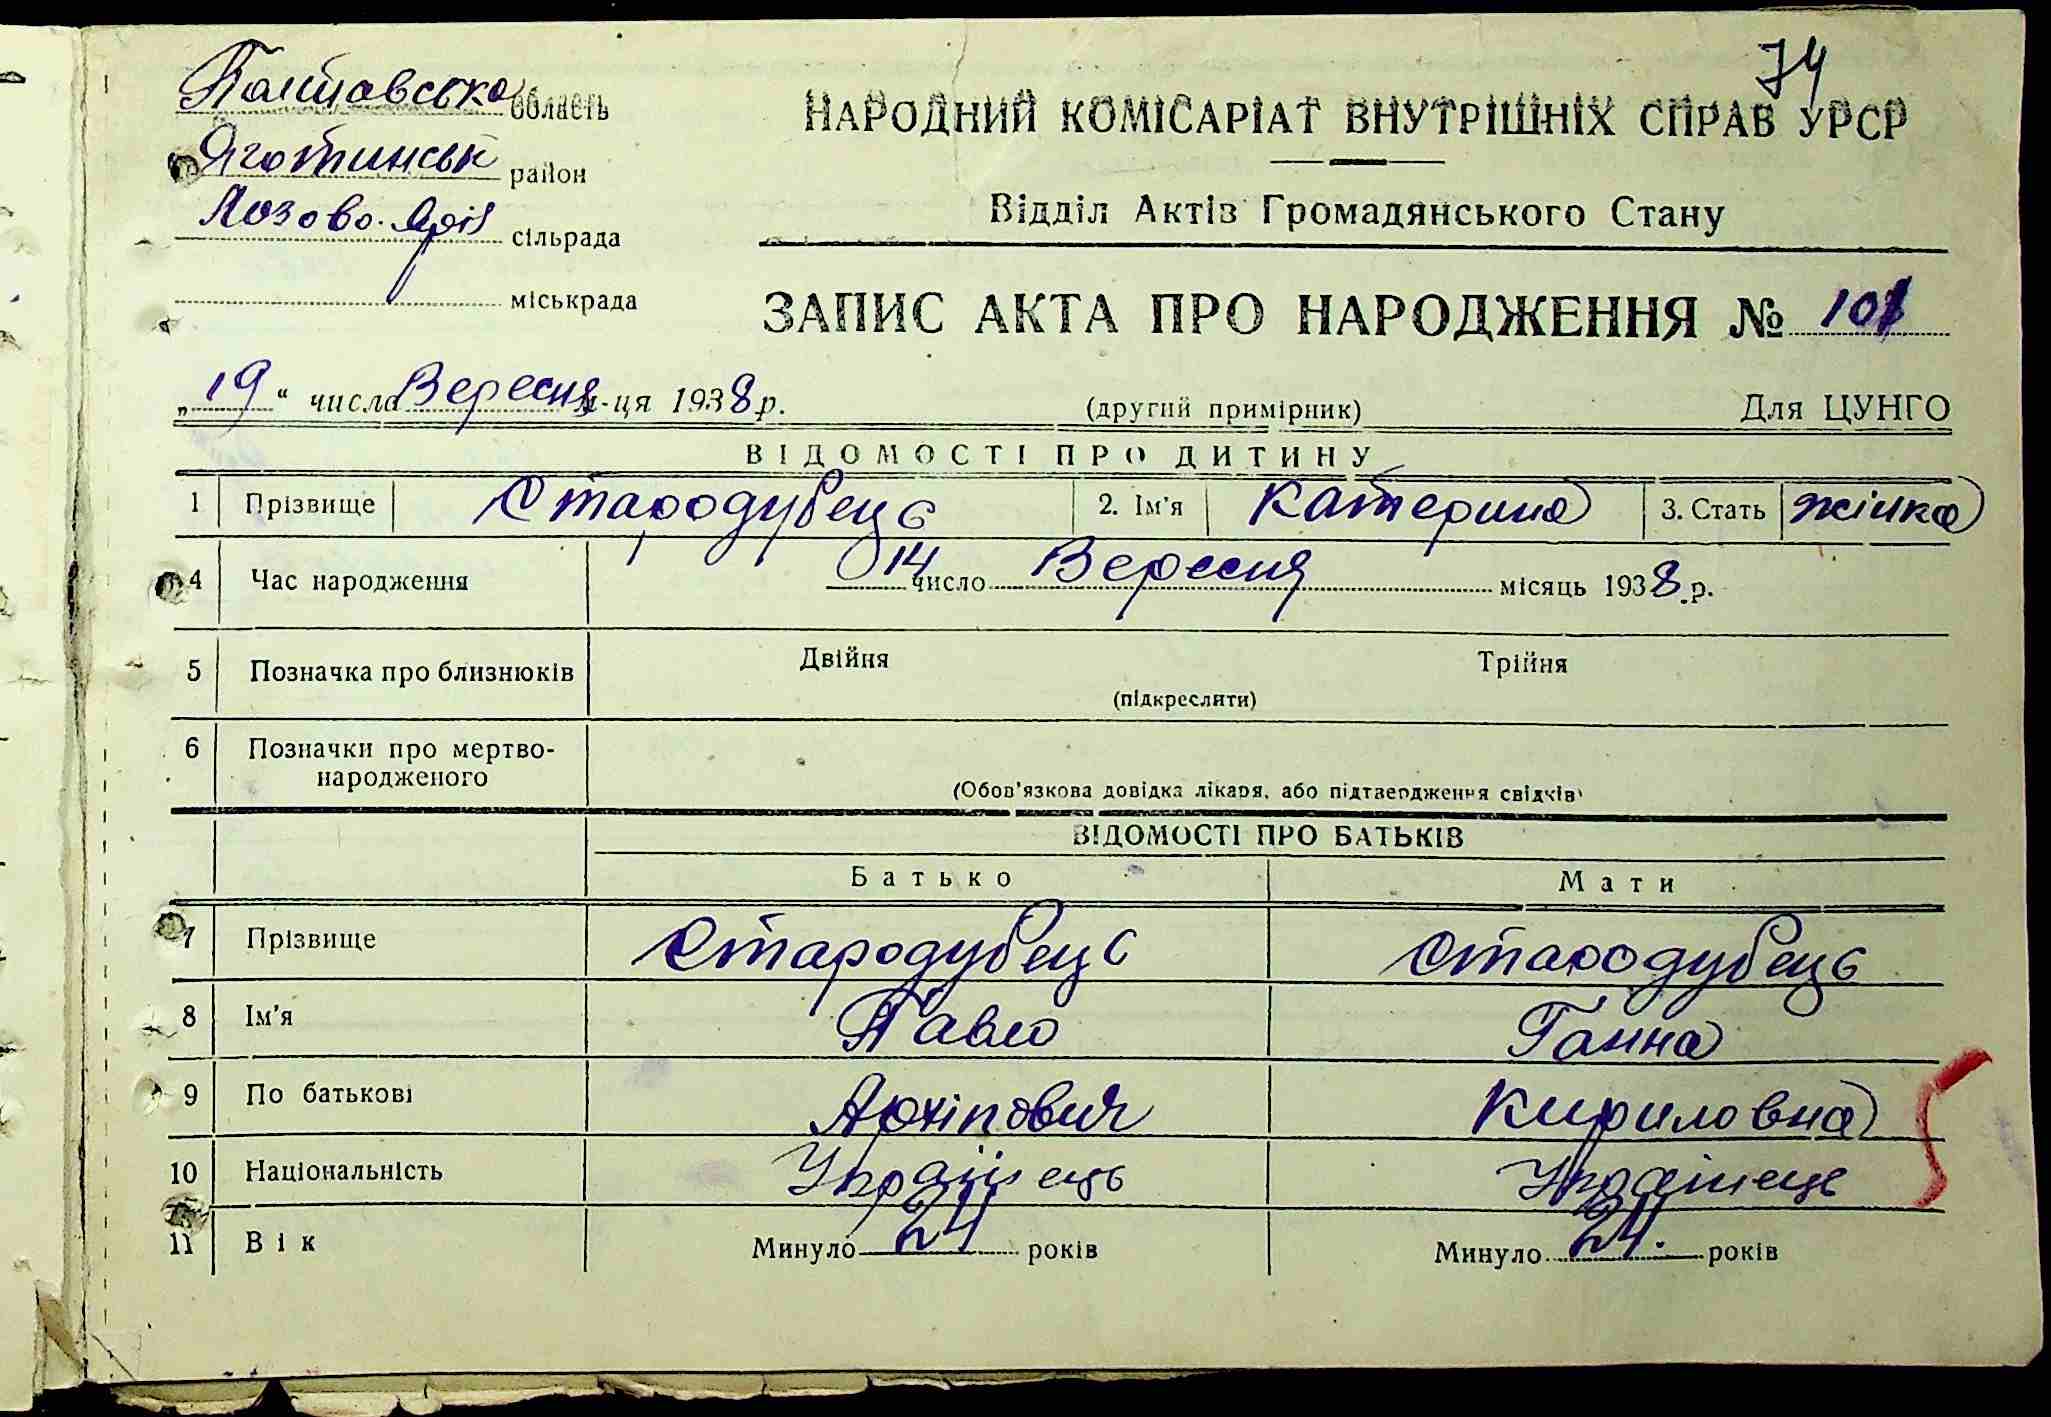 74
Полтавська область
Яготинськ район
Лозово-Ярів сільрада
міськрада
НАРОДНИЙ КОМІСАРІАТ ВНУТРІШНІХ СПРАВ УРСР
Відділ Актів Громадянського Стану
ЗАПИС АКТА ПРО НАРОДЖЕННЯ № 101
„19“ числа Вересня м-ця 1938 р. (другий примірник) Для ЦУНГО
ВІДОМОСТІ ПРО ДИТИНУ
1 Прізвище Стародубець 2. Ім'я Катерина 3. Стать жінка
4 Час народження 14 число Вересня місяць 1938 р.
5 Позначка про близнюків Двійня Трійня
(підкреслити)
6 Позначки про мертво-
народженого
(Обов'язкова довідка лікаря, або підтвердження свідків)
ВІДОМОСТІ ПРО БАТЬКІВ
Батько Мати
7 Прізвище Стародубець Стародубець
8 Ім'я Павло Ганна
9 По батькові Архіпович Кириловна
10 Національність Українець Українець
11 Вік Минуло 24 років Минуло 24. років